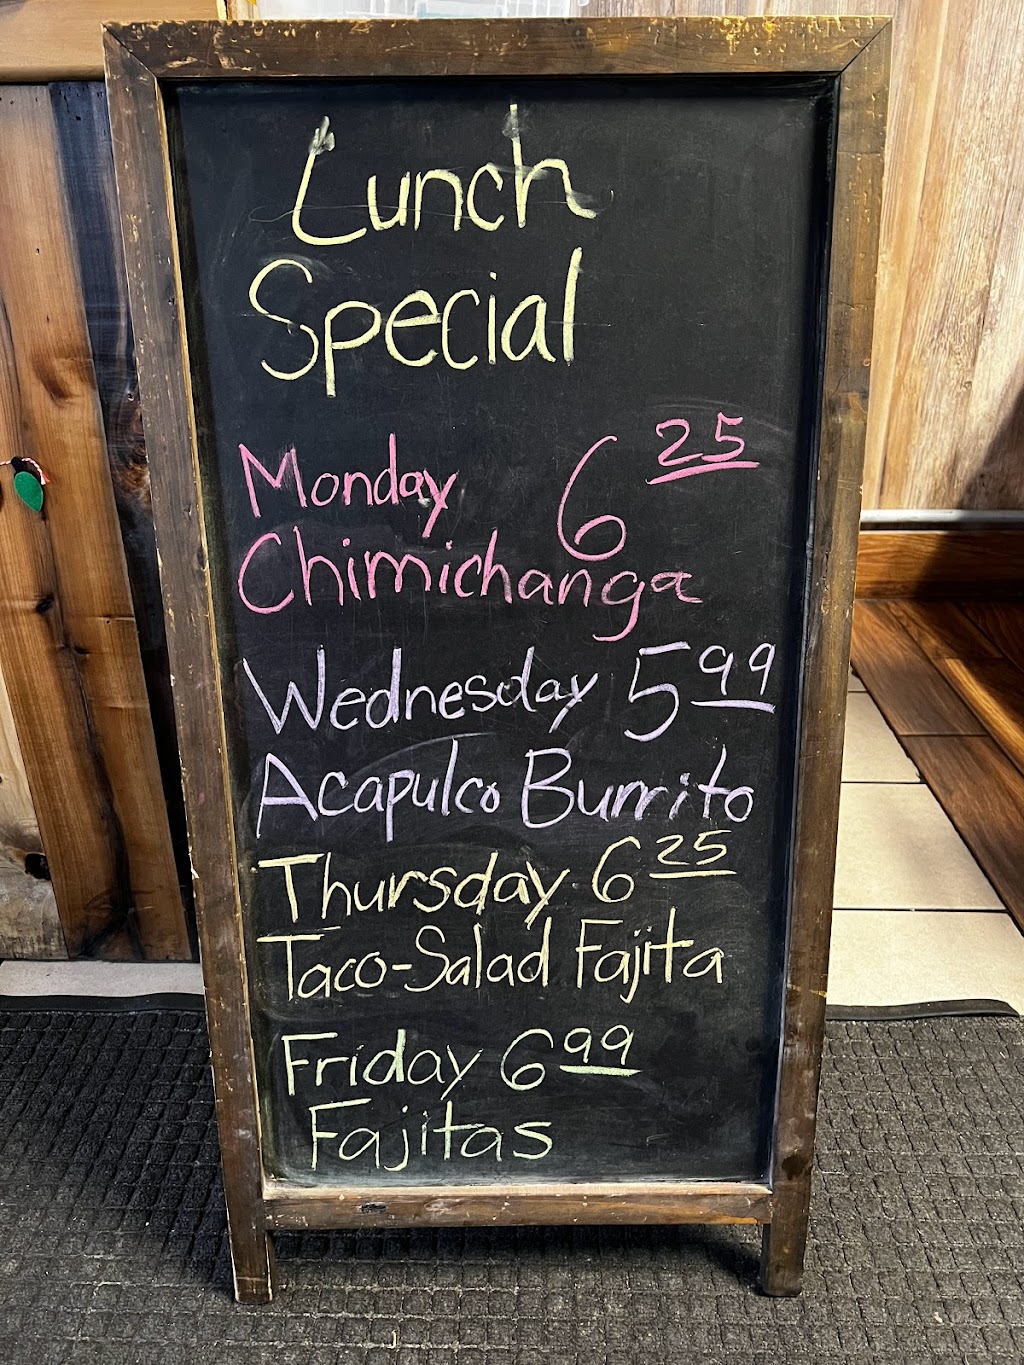 Lunch
Special
Monday 6 25
Chimichanga
Wednesday 5 99
Acapulco Burrito
Thursday 6 25
Taco-Salad Fajita
Friday 6 99
Fajitas